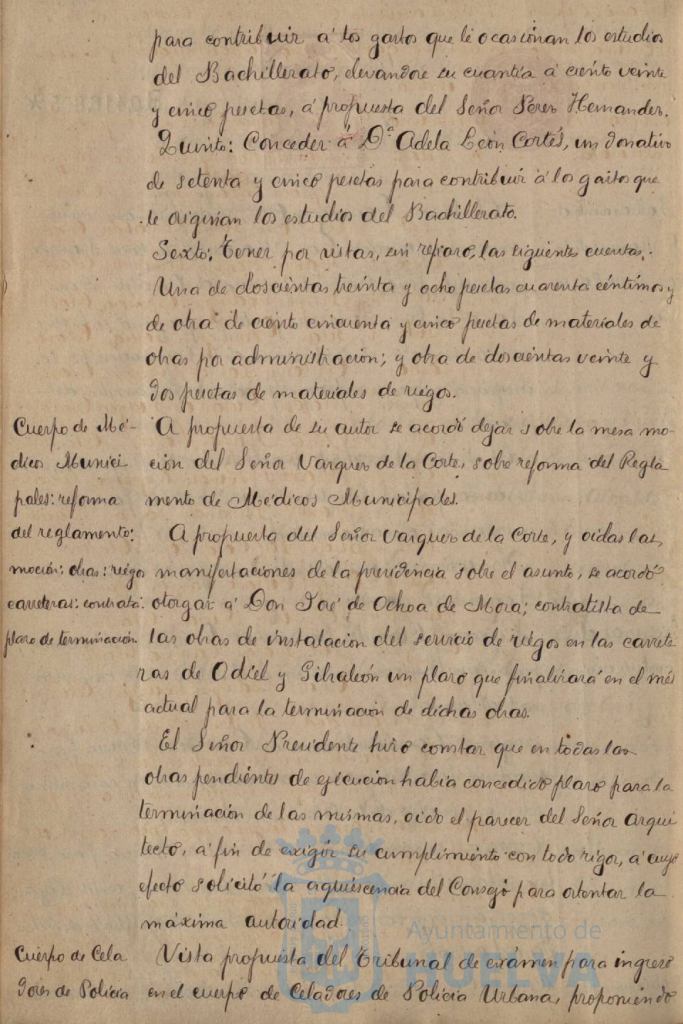 para contribuir á los gastos que le ocasionan los estudios
del Bachillerato, elevandose su cuantía á ciento veinte
y cinco pesetas, á propuesta del Señor Perez Hernandez.
Quinto: Conceder á Dª Adela León Cortés, un donativo
de setenta y cinco pesetas para contribuir á los gastos que
le originan los estudios del Bachillerato.
Sexto: Tener por vistas, sin reparo, las siguientes cuentas.
Una de doscientas treinta y ocho pesetas cuarenta céntimos y
de otra de ciento cincuenta y cinco pesetas de materiales de
obras por administración; y otra de doscientas veinte y
dos pesetas de materiales de riegos.
Cuerpo de Mé-
dicos Munici
pales: reforma
del reglamento:
A propuesta de su autor se acordó dejar sobre la mesa mo-
ción del Señor Vazquez de la Corte, sobre reforma del Regla
mento de Médicos Municipales.
moción: obras: riegos
carreteras: contrata:
plazo de terminación
A propuesta del Señor Vazquez de la Corte, y oidas las
manifestaciones de la presidencia sobre el asunto, se acordó
otorgar á Don José de Ochoa de Mora; contratista de
las obras de instalación del servicio de riegos en las carrete
ras de Odiel y Gibraleón un plazo que finalizará en el mes
actual para la terminación de dichas obras.
El Señor Presidente hizo constar que en todas las
obras pendientes de ejecución había concedido plazo para la
terminación de las mismas, oido el parecer del Señor Arqui
tecto, á fin de exigir su cumplimiento con todo rigor, á cuyo
efecto solicitó la aquiescencia del Consejo para ostentar la
máxima autoridad.
Cuerpo de Cela
dores de Policia
Vista propuesta del Tribunal de exámen para ingreso
en el cuerpo de Celadores de Policia Urbana, proponiendo
Ayuntamiento de
HUELVA